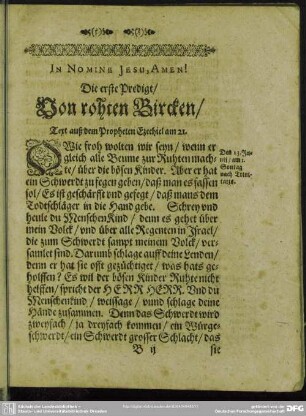 IN NOMINE JESU, AMEN!
Die erste Predigt/
Von rohten Bircken/
Text auß dem Propheten Ezechiel am 21.
O Wie froh wolten wir seyn/ wenn er
gleich alle Beume zur Ruhten mach-
te/ über die bösen Kinder. Aber er hat
ein Schwerdt zu fegen geben/ daß man es fassen
sol/ Es ist geschärfft und gefegt/ daß mans dem
Todtschläger in die Hand gebe. Schrey vnd
heule du MenschenKind/ denn es gehet über
mein Volck/ vnd über alle Regenten in Israel/
die zum Schwerdt sampt meinem Volck/ ver-
samlet sind. Darumb schlage auff deine Lenden/
denn er hat sie offt gezüchtiget/ was hats ge-
holffen? Es wil der bösen Kinder Ruhte nicht
helffen/ spricht der HERR HERR. Vnd du
Menschenkind/ weissage/ vnnd schlage deine
Hände zusammen. Denn das Schwerdt wird
zweyfach/ ja dreyfach kommen/ ein Würge-
schwerdt/ ein Schwerdt grosser Schlacht/ das
B ij sie
Sontag
nach Trini-